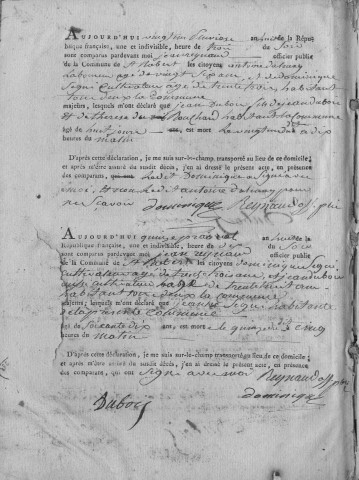 AUJOURD'HUI vingt un pluviose an de la République
française, une et indivisible, heure de du Soir
sont comparus pardevant moi officier public
de la Commune de St Robert les citoyens antoine
Laboureur age de vingt Sept ans, et dominique
Signé cultivateur age de trente trois habitant
tous deux la commune
majeurs, lesquels m'ont déclaré que jean dubois fils de jean dubois
et de therese Bouchard habitant la commune
âgé de huit jours est mort Le vingt un de à dix
heures du matin
D'après cette déclaration, je me suis sur-le-champ transporté au lieu de ce domicile;
et après m'être assuré du susdit décès, j'en ai dressé le présent acte, en présence
des comparans, qui Dominique a Signé avec
moi, et non Le dit antoine pour
ne Scavoir dominique Reynaud off. pu
AUJOURD'HUI quinze an de la
République française, une et indivisible, heure de dix du Soir
sont comparus pardevant moi jean reynaud officier public
de la Commune de St Robert les citoyens Dominique Signé
cultivateur age de trente trois ans, et jean dubois
aussi cultivateur age de trente huit ans
habitant tous deux la commune
majeurs, lesquels m'ont déclaré que Signé habitante
de la presente Commune
âgé de Soixante dix ans, est mort le quinze de à cinq
heures du matin
D'après cette déclaration, je me suis sur-le-champ transporté au lieu de ce domicile;
et après m'être assuré du susdit décès, j'en ai dressé le présent acte, en présence
des comparans, qui ont Signé avec moi Reynaud off. pu
Dubois dominique